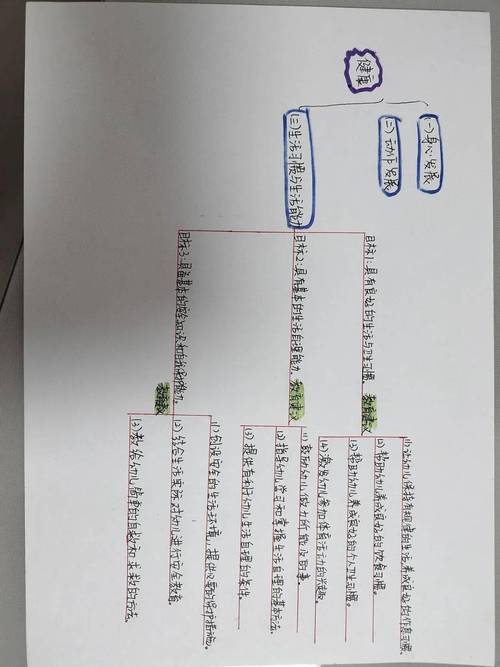 健康
(一)身心发展
(二)动作发展
(三)生活习惯与生活能力
目标1:具有良好的生活与卫生习惯。 教育建议
(1)让幼儿保持有规律的生活,养成良好的作息习惯。
(2)帮助幼儿养成良好的饮食习惯。
(3)帮助幼儿养成良好的个人卫生习惯。
(4)激发幼儿参加体育活动的兴趣。
目标2:具有基本的生活自理能力。 教育建议
(1)鼓励幼儿做力所能及的事。
(2)指导幼儿学习和掌握生活自理的基本方法。
(3)提供有利于幼儿生活自理的条件。
目标3:具备基本的安全知识和自我保护能力。 教育建议
(1)创设安全的生活环境,提供必要的保护措施。
(2)结合生活实际对幼儿进行安全教育。
(3)教给幼儿简单的自救和求救的方法。